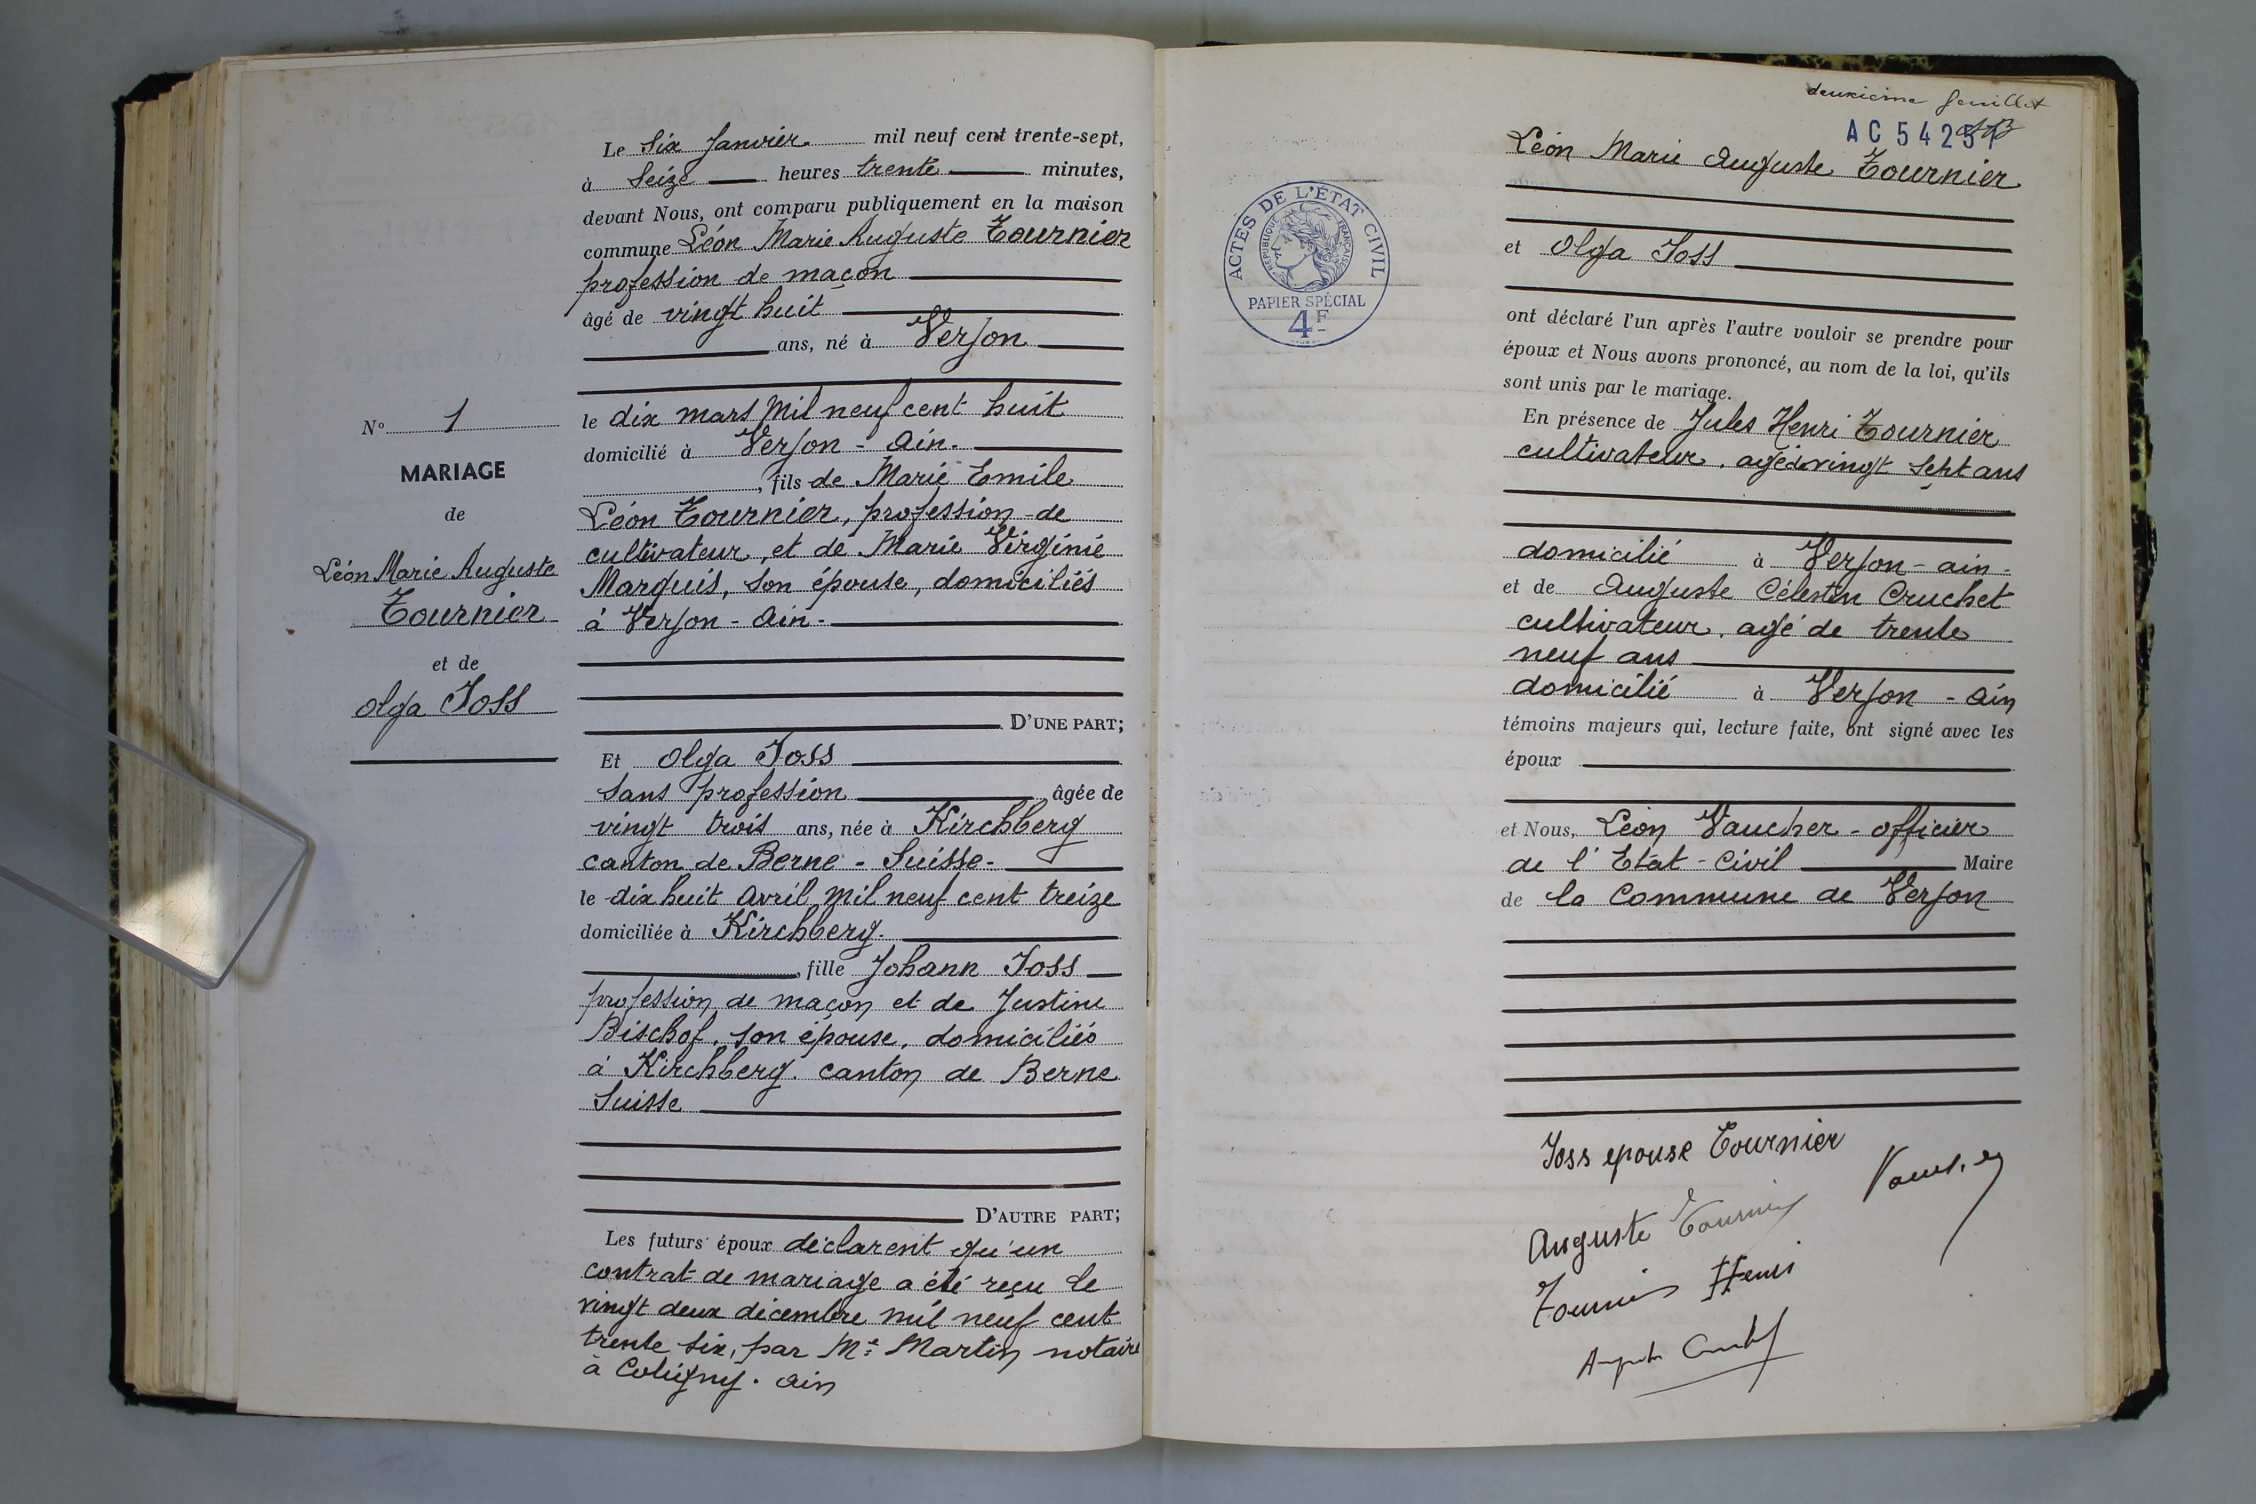 Le six Janvier mil neuf cent trente-sept,
à Seize heures trente minutes,
devant Nous, ont comparu publiquement en la maison
commune Léon Marie Auguste Tournier
profession de maçon
âgé de vingt huit
ans, né à Verjon
le dix mars mil neuf cent huit
domicilié à Verjon - Ain.
, fils de Marie Emile
Léon Tournier, profession de
cultivateur, et de Marie Virginie
Marquis, son épouse, domiciliés
à Verjon - Ain -
D'UNE PART;
Et Olga Joss
sans profession âgée de
vingt trois ans, née à Kirchberg
canton de Berne - Suisse -
le dix huit avril mil neuf cent treize
domiciliée à Kirchberg.
, fille Johann Joss
profession de maçon et de Justine
Bischof, son épouse, domiciliés
à Kirchberg. canton de Berne
Suisse
D'AUTRE PART;
Les futurs époux déclarent qu'un
contrat de mariage a été reçu le
vingt deux décembre mil neuf cent
trente six, par Me Martin notaire
à Coligny. Ain
No 1
MARIAGE
de
Léon Marie Auguste
Tournier
et de
Olga Joss
deuxième feuillet
AC 54251
Léon Marie Auguste Tournier
et Olga Joss
ont déclaré l'un après l'autre vouloir se prendre pour
époux et Nous avons prononcé, au nom de la loi, qu'ils
sont unis par le mariage.
En présence de Jules Henri Tournier
cultivateur. agé de vingt sept ans
domicilié à Verjon - ain -
et de Auguste Célestin Cruchet
cultivateur. agé de trente
neuf ans
domicilié à Verjon - Ain
témoins majeurs qui, lecture faite, ont signé avec les
époux
et Nous, Léon Vaucher - officier
de l'Etat - Civil Maire
de la Commune de Verjon
ACTES DE L'ÉTAT CIVIL
RÉPUBLIQUE FRANÇAISE
PAPIER SPÉCIAL
4F
Joss epouse Tournier
Vaucher
Auguste Tournier
Tournier Henri
Auguste Cruchet